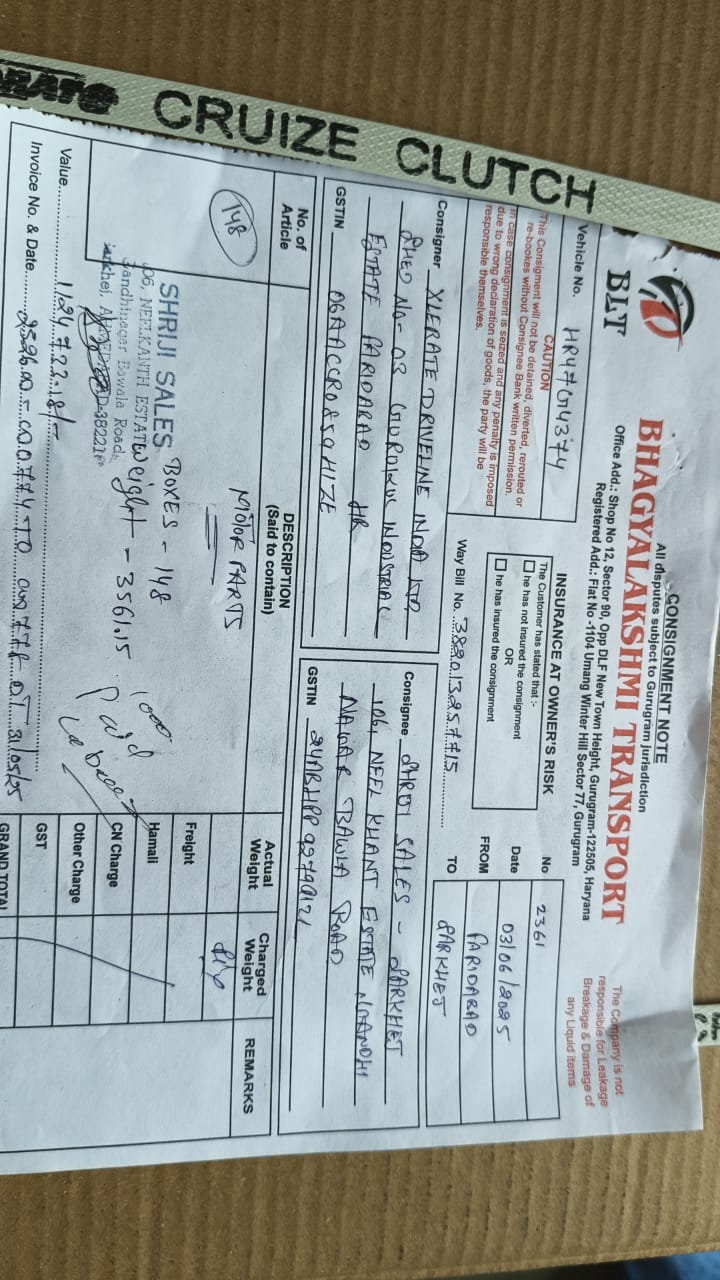 CRUIZE CLUTCH
CONSIGNMENT NOTE
All disputes subject to Gurugram jurisdiction
BLT
BHAGYALAKSHMI TRANSPORT
Office Add.: Shop No 12, Sector 90, Opp DLF New Town Height, Gurugram-122505, Haryana
Registered Add.: Flat No -1104 Umang Winter Hill Sector 77, Gurugram
The Company is not
responsible for Leakage
Breakage & Damage of
any Liquid items
Vehicle No. HR47G4374
CAUTION
This Consigment will not be detained, diverted, rerouted or
re-bookes without Consignee Bank written permission.
In case consignment is seized and any penalty is imposed
due to wrong declaration of goods, the party will be
responsible themselves.
INSURANCE AT OWNER'S RISK
The Customer has stated that :-
he has not insured the consignment
OR
he has insured the consignment
Way Bill No. 382013257715
No 2361
Date 03/06/2025
FROM FARIDABAD
TO SARKHEJ
Consigner XLERATE DRIVELINE INDIA LTD
SHED No- 03 INDUSTRIAL
ESTATE FARIDABAD HR
GSTIN
Consignee SHRIJI SALES - SARKHEJ
106, NEEL KHANT ESTATE, GANDHI
NAGAR BAWLA ROAD
GSTIN
No. of
Article
DESCRIPTION
(Said to contain)
Actual
Weight
Charged
Weight
REMARKS
148
MOTOR PARTS
BOXES - 148
Weight - 3561.15
SHRIJI SALES
06, NEELKANTH ESTATE
Gandhinagar Bawala Road,
1000
Paid
Freight
Hamali
CN Charge
Other Charge
GST
GRAND TOTAL
Value 1124722.18/-
Invoice No. & Date DT 31/05/25